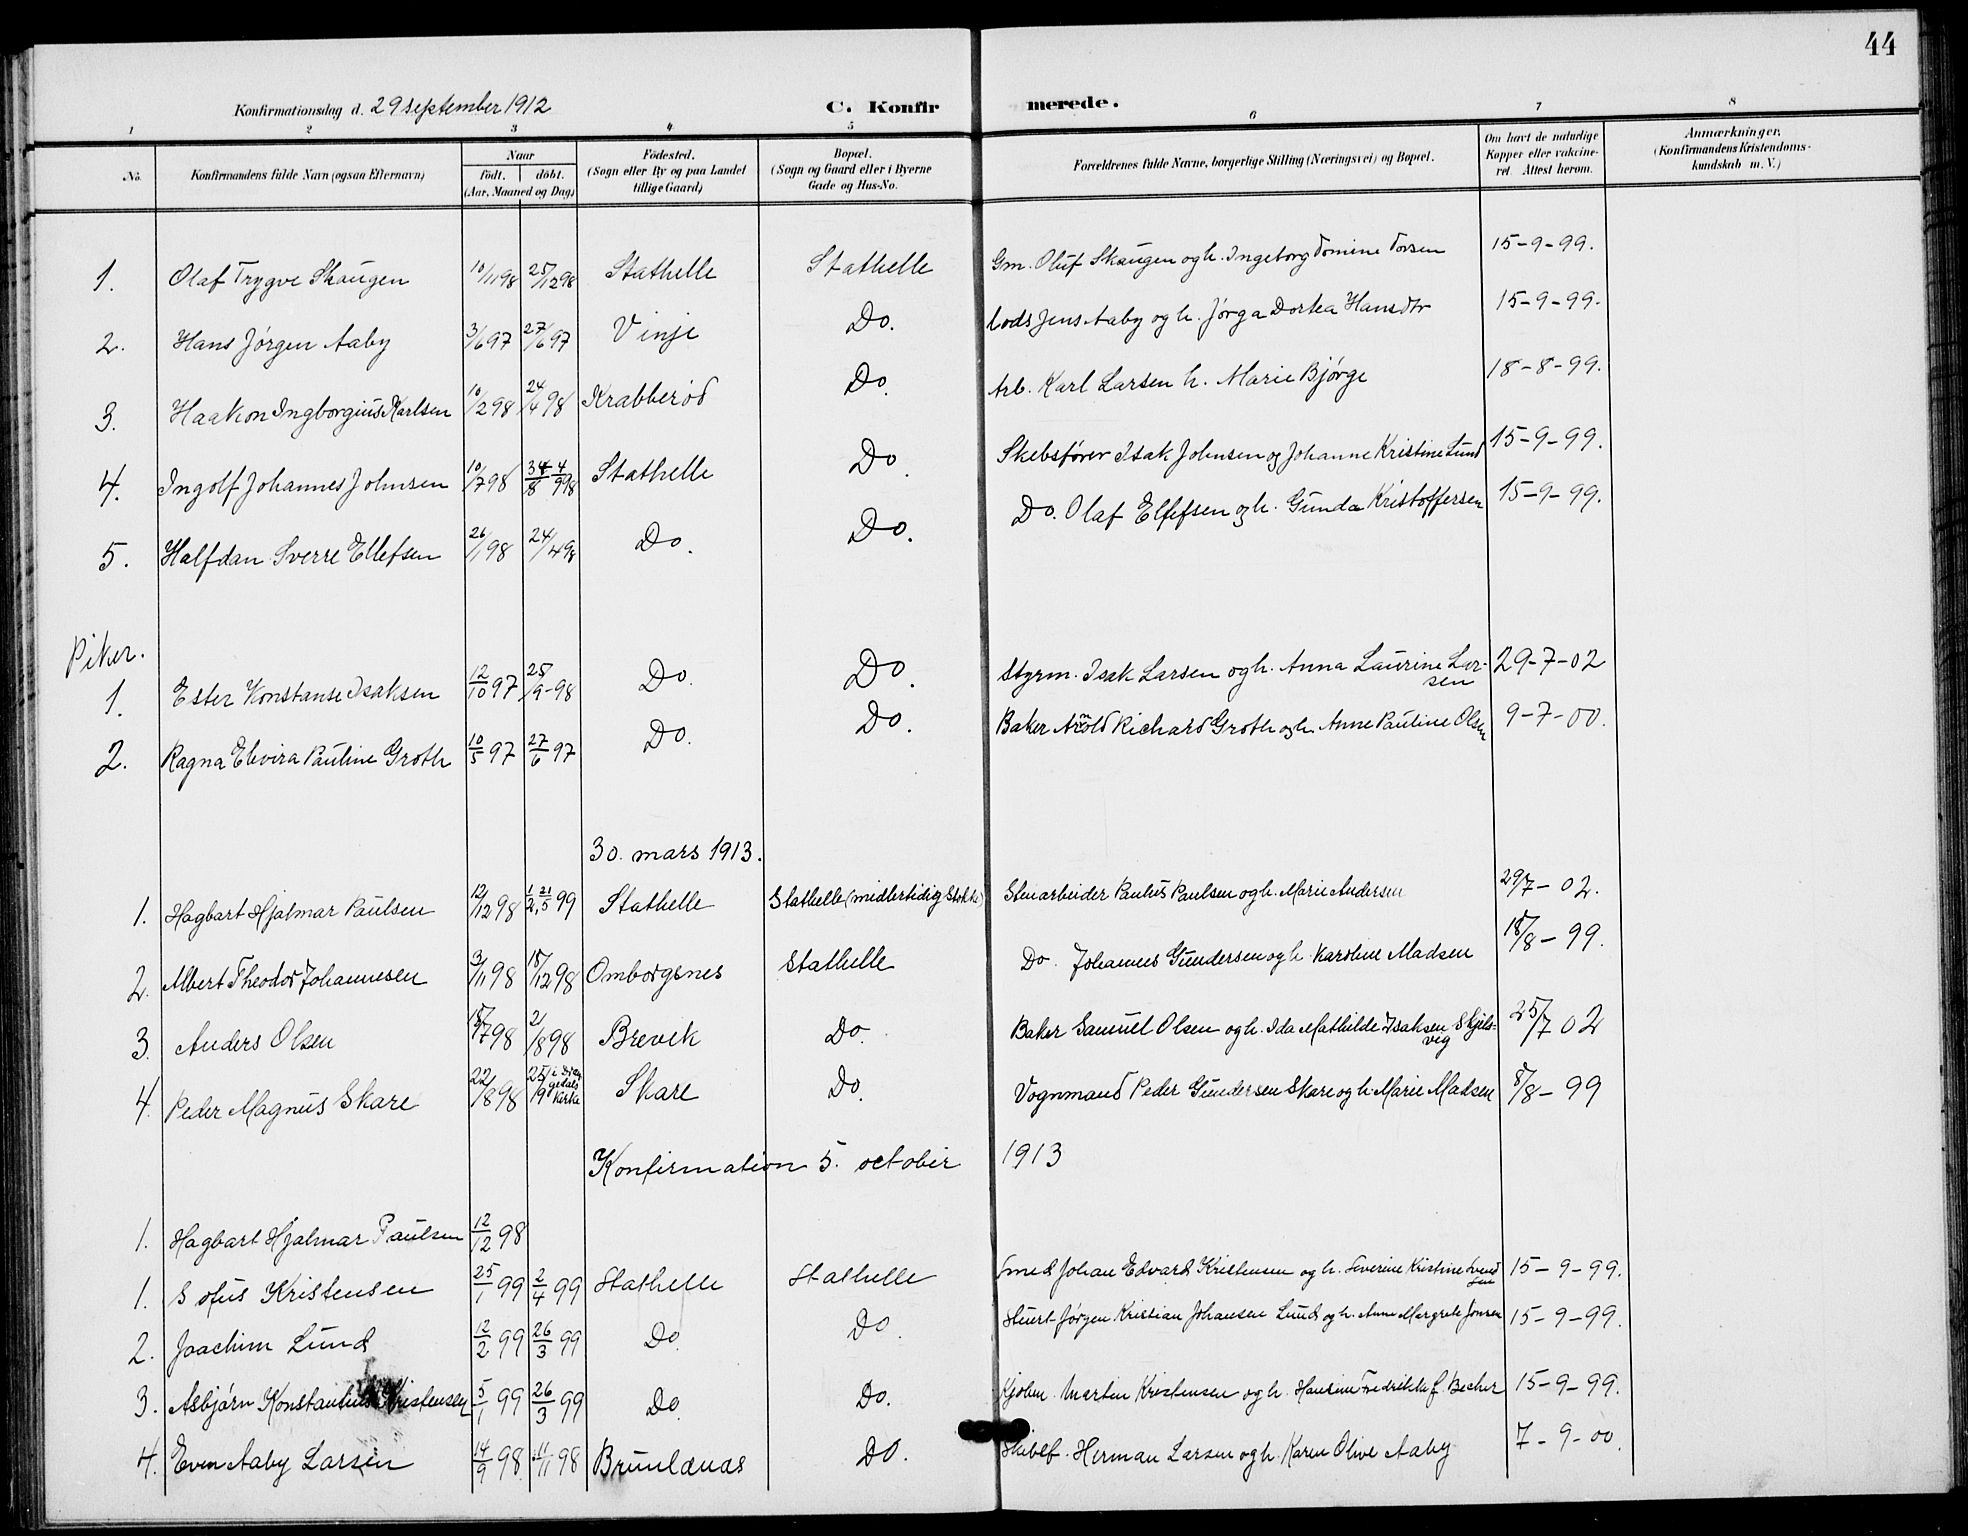 44
Konfirmationsdag d. 29 september 1912 C. Konfirmerede.
1 2 3 4 5 6 7 8
No. Konfirmandens fulde Navn (ogsaa Efternavn) Naar født. døbt. (Aar, Maaned og Dag) Fødested. (Sogn eller By og paa Landet tillige Gaard) Bopæl. (Sogn og Gaard eller i Byerne Gade og Hus-No. Forældrenes fulde Navne, borgerlige Stilling (Næringsvei) og Bopæl. Om havt de naturlige Kopper eller vakcineret. Attest herom. Anmærkninger, (Konfirmandens Kristendomskundskab m. V.)
1. Olaf Trygve Skaugen 10/11 98 25/12 98 Stathelle Stathelle Gm. Oluf Skaugen og h. Ingeborg Tomine Torsen 15-9-99.
2. Hans Jørgen Aaby 3/6 97 27/6 97 Vinje Do. Lods Jens Aaby og h. Jørga Dorthea Hansdtr 15-9-99.
3. Haakon Ingborgius Karlsen 10/2 98 24/4 98 Krabberød Do. Arb. Karl Larsen h. Marie Bjørge 18-8-99.
4. Ingolf Johannes Johnsen 10/7 98 4/9 98 Stathelle Do. Skebsfører Isak Johnsen og Johanne Kristine Lund 15-9-99.
5. Halfdan Sverre Ellefsen 26/1 98 24/4 98 Do. Do. Do. Olaf Ellefsen og h. Gunda Kristoffersen 15-9-99.
Piker.
1. Ester Konstanse Isaksen 12/10 97 25/9-98 Do. Do. Styrm. Isak Larsen og h. Anna Laurine Larsen 29-7-02
2. Ragna Elivira Pauline Groth 10/5 97 27/6 97 Do. Do. Baker Arnold Richard Groth og h. Anne Pauline Olsen 9-7-00.
30. mars 1913.
1. Hagbart Hjalmar Paulsen 12/12 98 1/2, 21/5 99 Stathelle Stathelle (midlertidig Stokke) Stenarbeider Paulus Paulsen og h. Marie Andersen 29/7-02.
2. Albert Theodor Johannesen 3/11 98 18/12 98 Omborgsnes Stathelle Do. Johannes Gundersen og h. Karoline Madsen 18/8-99.
3. Anders Olsen 15/7 98 21/8 98 Brevik Do. Baker Samuel Olsen og h. Ida Mathilde Isaksen Skjelsvig 25/7 02
4. Peder Magnus Skare 22/8 98 25/9 i Drangedals kirke Skare Do. Vognmand Peder Gundersen Skare og h. Marie Madsen 8/8-99
Konfirmation 5. october 1913
1. Hagbart Hjalmar Paulsen 12/12 98
1. Sofus Kristensen 25/1 99 2/4 99 Stathelle Stathelle Smed Johan Edvard Kristensen og h. Severine Kristine Svendsen 15-9-99.
2. Joachim Lund 12/2 99 26/3 99 Do. Do. Stuert Jørgen Kristian Johansen Lund og h. Anne Margrete Jonsen 15-9-99.
3. Asbjørn Konstantius Kristensen 5/1 99 26/3 99 Do. Do. Kjøbm. Marten Kristensen og h. Hansine Fredrikke f. Becher 15-9-99.
4. Even Aaby Larsen 14/9 98 11/11 98 Brunlanæs Do. Skibsf. Herman Larsen og h. Karen Olive Aaby 7-9-00.